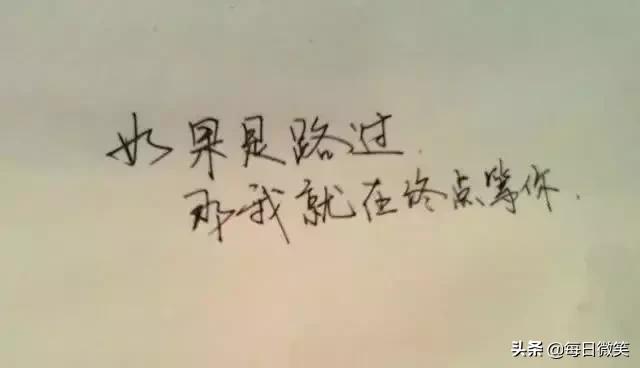 如果是路过.
那我就在终点等你.
头条 @每日微笑